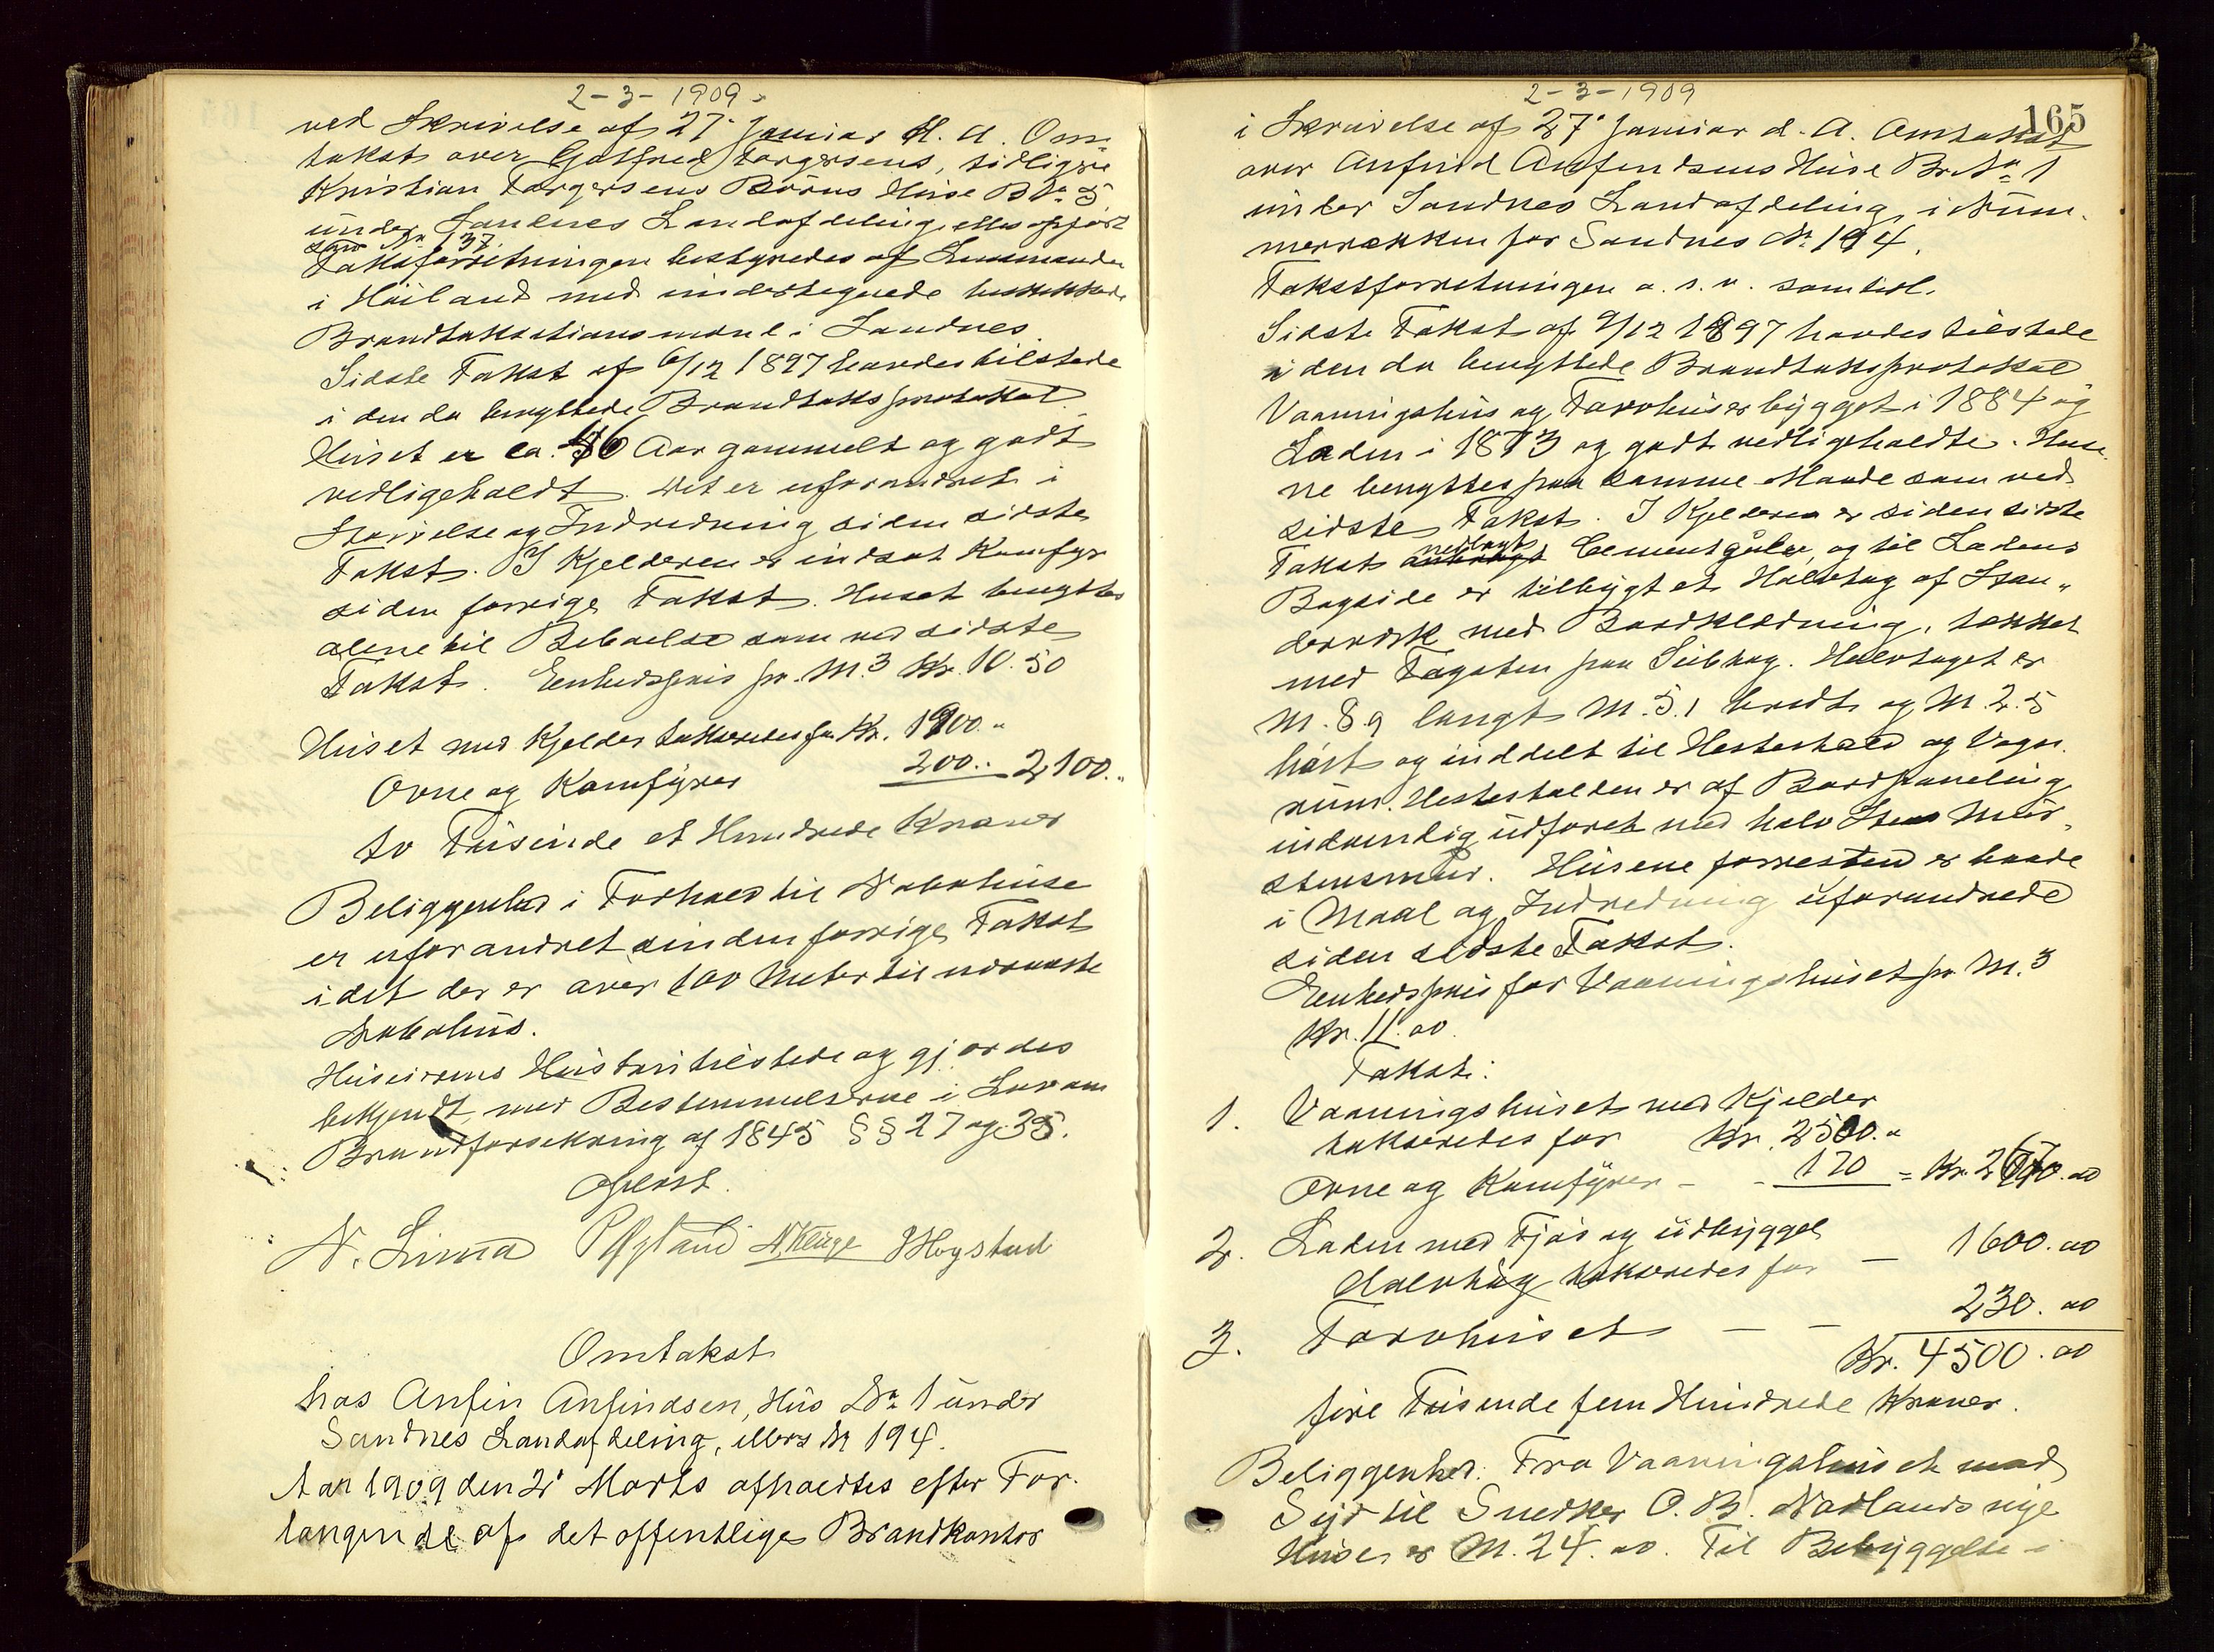 2-3-1909
ved Skrivelse af 27' Januar d. A. Om-
takst over Gotfred Torgersens, tidligere
Kristian Torgersens Börns Huse B No 5
under Sandnes Landafdeling, ellers opfört
som No 137
Takstforretningen bestyredes af Lensmanden
i Höiland med undertegnede beskikkede
Brandtakstionsmænd i Sandnes.
Sidste Takst af 6/12 1897 havdes tilstede
i den da benyttede Brandtakstprotokol.
Huset er ca. 46 Aar gammelt og godt
vedligeholdt. Det er uforandret i
Störrelse og Indredning siden sidste
Takst. I Kjelderen er indsat Komfyr
siden forrige Takst. Huset benyttes
alene til Beboelse som ved sidste
Takst. Enhedspris pr. M.3 Kr. 10.50
Huset med Kjelder takseredes for Kr. 1900.„
Ovne og Komfyrer 200.„ 2100.„
to Tusinde et Hundrede Kroner
Beliggenhed i Forhold til Nabohuse
er uforandret sinden forrige Takst
idet der er over 100 Meter til nærmeste
Nabohus.
Huseierens Hustru tilstede og gjordes
bekjendt med Bestemmelserne i Lov om
Brandforsekring af 1845 §§ 27 og 35.
Oplæst.
N. Lima N. Kluge Hogstad
Omtakst
hos Anfin Anfindsen, Hus No 1 under
Sandnes Landafdeling, ellers No 194.
Aar 1909 den 2' Marts afholdtes efter For-
langende af det offentlige Brandkontor
2-3-1909
165
i Skrivelse af 27' Januar d. A. Omtakst
over Anfind Anfindsens Huse Br. No 1
under Sandnes Landafdeling, i Num-
merrækken for Sandnes No 194.
Takstforretningen o. s. v. samtidl.
Sidste Takst af 9/12 1897 havdes tilstede
i den da benyttede Brandtakstprotokol
Vaaningshus og Torvhus er bygget i 1884 og
Laden i 1873 og godt vedligeholdte. Huse-
ne benyttes paa samme Maade som ved
sidste Takst. I Kjelderen er siden sidste
Takst nedlagt Cementgulv, og til Ladens
Bagside er tilbygt et Halvtag af Stan-
derværk med Bordklædning, tækket
med Tagsten paa Sutag. Halvtaget er
M. 8.9 langt M. 5.1 bredt og M. 2.5
höit og inddelt til Hestestald og Vogn-
rum. Hestestalden er af Bordpaneling
indvendig udforet med halv Stens Mur-
stensmur. Husene forresten er baade
i Maal og Indredning uforandrede
siden sidste Takst.
Enhedspris for Vaaningshuset pr. M.3
Kr. 11.00
Takst:
1. Vaaningshuset med Kjelder
takseredes for Kr. 2500.„
Ovne og Komfyrer - - 170 = Kr. 2670.00
2. Laden med Fjös og udbygget
Halvtag takseredes for — 1600.00
3. Torvhuset — — 230.00
Kr. 4500.00
fire Tusende fem Hundrede Kroner.
Beliggenhed: Fra Vaaningshuset mod
Syd til Snedker O. B. Nadlands nye
Huse er M. 24.00. Til Bebyggelse i